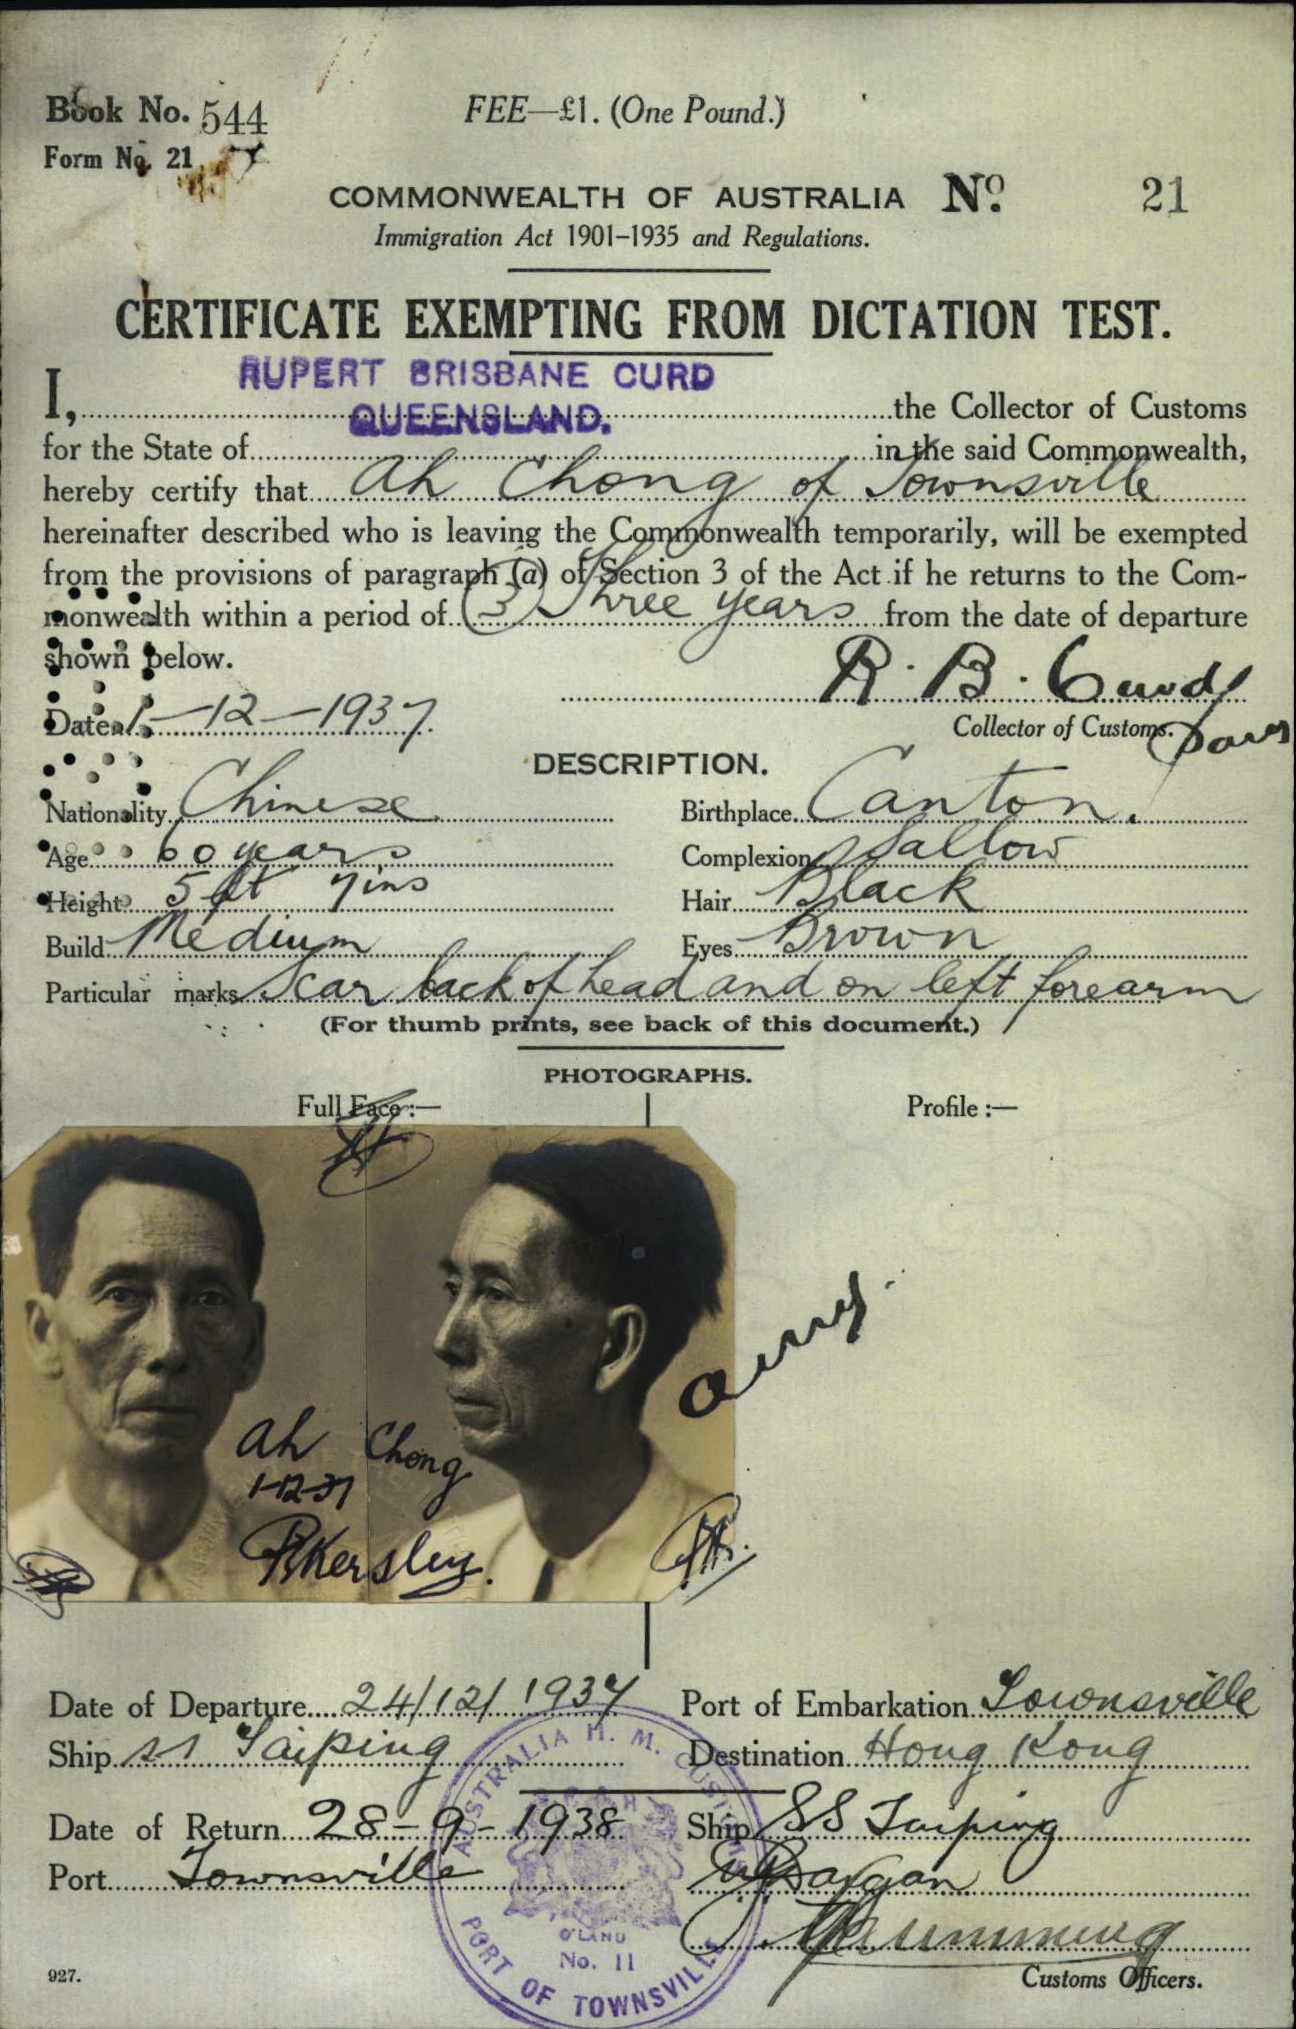 Book No. 544
FEE—£1. (One Pound.)
Form No. 21
COMMONWEALTH OF AUSTRALIA No. 21
Immigration Act 1901–1935 and Regulations.
CERTIFICATE EXEMPTING FROM DICTATION TEST.
RUPERT BRISBANE CURD
I, the Collector of Customs
QUEENSLAND.
for the State of in the said Commonwealth,
hereby certify that Ah Chong of Townsville
hereinafter described who is leaving the Commonwealth temporarily, will be exempted
from the provisions of paragraph (a) of Section 3 of the Act if he returns to the Com-
monwealth within a period of (3) Three years from the date of departure
shown below.
R. B. Curd
Date 1-12-1937
Collector of Customs.
DESCRIPTION.
Nationality Chinese Birthplace Canton.
Age 60 years Complexion Sallow
Height 5 ft 7 ins Hair Black
Build Medium Eyes Brown
Particular marks Scar back of head and on left forearm
(For thumb prints, see back of this document.)
PHOTOGRAPHS.
Full Face :— Profile :—
Ah Chong
1-12-37
Kersley.
Date of Departure 24/12/1937 Port of Embarkation Townsville
Ship ss Taiping Destination Hong Kong
Date of Return 28-9-1938 Ship SS Taiping
Port Townsville
AUSTRALIA H. M. CUSTOMS
Q'LAND
No. 11
PORT OF TOWNSVILLE
927.
Customs Officers.